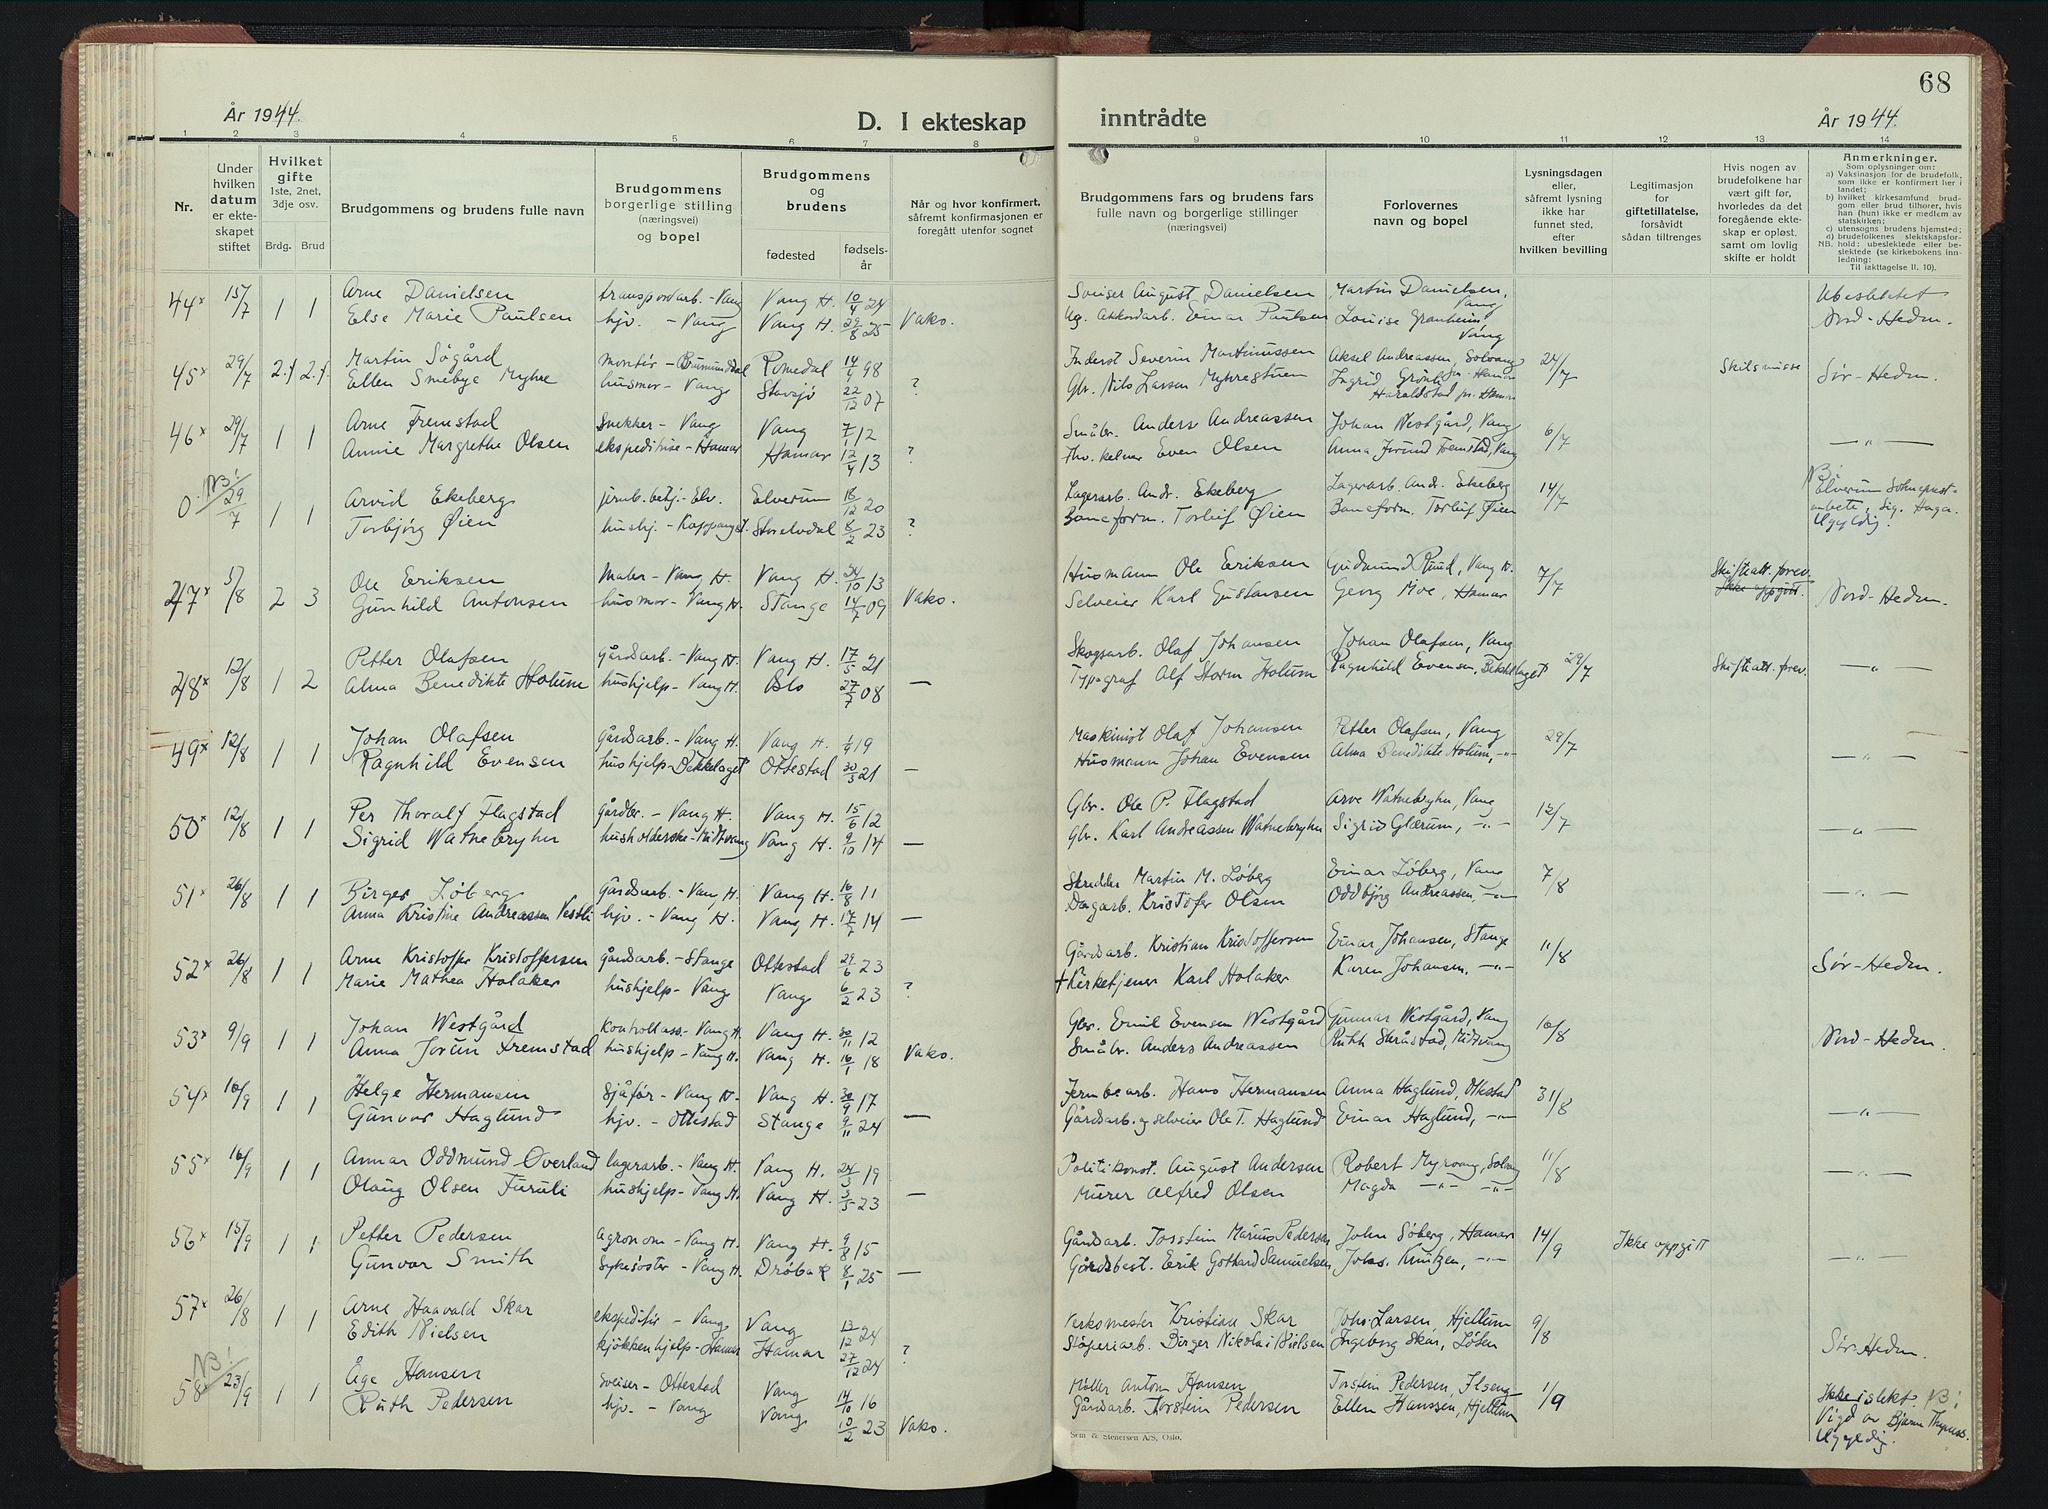 68
År 1944.
D. I ekteskap
inntrådte
År 1944.
1 2 3 4 5 6 7 8 9 10 11 12 13 14
Nr.
Under hvilken datum er ekteskapet stiftet
Hvilket gifte 1ste, 2net, 3dje osv.
Brdg. Brud
Brudgommens og brudens fulle navn
Brudgommens borgerlige stilling (næringsvei) og bopel
Brudgommens og brudens
fødested
fødselsår
Når og hvor konfirmert, såfremt konfirmasjonen er foregått utenfor sognet
Brudgommens fars og brudens fars fulle navn og borgerlige stillinger (næringsvei)
Forlovernes navn og bopel
Lysningsdagen eller, såfremt lysning ikke har funnet sted, efter hvilken bevilling
Legitimasjon for giftetillatelse, forsåvidt sådan tiltrenges
Hvis nogen av brudefolkene har vært gift før, hvorledes da det foregående ekteskap er opløst, samt om lovlig skifte er holdt
Anmerkninger.
Som oplysninger om:
a) Vaksinasjon for de brudefolk, som ikke er konfirmert her i landet;
b) hvilket kirkesamfund brudgom eller brud tilhører, hvis han (hun) ikke er medlem av statskirken;
c) utensogns brudens hjemsted;
d) brudefolkenes slektskapsforhold: ubeslektede eller beslektede (se kirkebokens innledning:
NB. Til iakttagelse II. 10).
44x 15/7 1 1 Arne Danielsen transportarb. - Vang Vang H. 10/4 24 Sveiser August Danielsen Martin Danielsen, Vang Ubeslektet
Else Marie Paulsen hjv. - Vang Vang H. 29/8 25 Vako. Akkordarb. Einar Paulsen Louise Granheim, Vang Nord-Hedm.
45x 29/7 2.f 2.f. Martin Søgård montør - Brumunddal Romedal 14/4 98 Inderst Severin Martinussen Aksel Andreassen, Solvang pr. Hamar 24/7 Skilsmisse
Ellen Smebye Myhre husmor - Vang Stavsjø 22/12 07 ? Gbr. Nils Larsen Myhrestuen Ingrid Grönli Haraldstad pr. Hamar Sør-Hedm.
46x 29/7 1 1 Arne Fremstad Snekker - Vang Vang 7/1 12 Småbr. Anders Andreassen Johan Westgård, Vang 6/7
Annie Margrethe Olsen ekspeditrise - Hamar Hamar 12/4 13 ? Fhv. kelner Even Olsen Anna Jorund Fremstad, Vang — " —
0. NB! 29/7 1 1 Arvid Ekeberg jernb.betj. - Elv. Elverum 18/12 20 Lagerarb. Andr. Ekeberg Lagerarb. Andr. Ekeberg 14/7 NB! Elverum Sokneprest-
Torbjörg Øien hushj. - Koppang st. Storelvdal 8/2 23 ? Baneform. Torleif Øien Baneform. Torleif Øien embete, sig. Haga. Ugyldig!
47x 5/8 2 3 Ole Eriksen Maler - Vang H. Vang H. 24/10 13 Husmann Ole Eriksen Gudmund Ruud, Vang H. 7/7 Skifteatt. forev.
Gunhild Antonsen husmor - Vang H. Stange 14/7 09 Vako. Selveier Karl Gustavsen Georg Moe, Hamar Ikke oppgitt. Nord-Hedm.
48x 12/8 1 2 Petter Olafsen gårdsarb. - Vang H. Vang H. 17/5 21 Skogsarb. Olaf Johansen Johan Olafsen, Vang 29/7 Skifteatt. forev. — " —
Alma Benedikte Holum hushjelp - Vang H. Oslo 27/7 08 — Typograf Alf Storm Holum Ragnhild Evensen, Bekkelaget
49x 12/8 1 1 Johan Olafsen Gårdsarb. - Vang H. Vang H. 1/9 19 Maskinist Olaf Johansen Petter Olafsen, Vang 29/7
Ragnhild Evensen hushjelp - Bekkelaget Ottestad 30/3 21 — Husmann Johan Evensen Alma Benedikte Holum, -"- — " —
50x 12/8 1 1 Per Thoralf Flagstad Gårdbr. - Vang H. Vang H. 15/6 12 Gbr. Ole P. Flagstad Arve Watnebryhn, Vang 12/7
Sigrid Watnebryhn husholderske - Midtvang Vang H. 9/10 14 — Gbr. Karl Andreassen Watnebryhn Sigrid Glærum, -"- — " —
51x 26/8 1 1 Birger Løberg Gårdsarb. - Vang H. Vang H. 16/8 11 Skredder Martin M. Løberg Einar Løberg, Vang 7/8
Anna Kristine Andreassen Vestli hjv. - Vang H. Vang H. 17/7 14 — Dagarb. Kristofer Olsen Oddbjörg Andreassen, -"- — " —
52x 26/8 1 1 Arne Kristoffer Kristoffersen gårdsarb. - Stange Ottestad 29/6 23 Gårdsarb. Kristian Kristoffersen Einar Johansen, Stange 11/8
Marie Mathea Holaker hushjelp - Vang Vang 6/2 23 ? + Kirketjener Karl Holaker Karen Johansen, -"- Sør-Hedm.
53x 9/9 1 1 Johan Westgård Kontrollass. - Vang H. Vang H. 30/11 12 Gbr. Emil Evensen Westgård Gunnar Westgård, Vang 10/8
Anna Jorun Fremstad hushjelp - Vang H. Vang H. 16/1 18 Vako. Småbr. Anders Andreassen Ruth Skråstad, Midtvang Nord-Hedm.
54x 16/9 1 1 Helge Hermansen Sjåfør - Vang H. Vang H. 30/9 17 Jernbearb. Hans Hermansen Anna Haglund, Ottestad 31/8
Gunvor Haglund hjv. - Ottestad Stange 9/11 24 — Gårdsarb. og selveier Ole T. Haglund Einar Haglund, -"- — " —
55x 16/9 1 1 Annar Oddmund Øverland lagerarb. - Vang H. Vang H. 24/3 19 Politikonst. August Andersen Robert Myrvang, Solvang 11/8
Olaug Olsen Furuli hushjelp - Vang H. Vang H. 3/5 23 — Murer Alfred Olsen Magda -"- -"- — " —
56x 15/9 1 1 Petter Pedersen agronom - Vang H. Vang H. 9/8 15 Gårdsarb. Torstein Marius Pedersen John Søberg, Hamar 14/9 Ikke oppgitt
Gunvor Smith Sykesøster - Vang H. Drøbak 8/1 25 — Gårdsbest. Erik Gothard Samuelsen Johs. Knutzen, -"- — " —
57x 26/8 1 1 Arne Haavald Skar ekspeditør - Vang Vang 13/12 24 Verksmester Kristian Skar Johs. Larsen, Hjellum 9/8
Edith Nielsen kjøkkenhjelp - Hamar Hamar 27/12 24 ? Støperiarb. Birger Nikolai Nielsen Ingeborg Skar, Løten Sør-Hedm.
58x NB! 23/9 1 1 Åge Hansen Sveiser - Ottestad Vang 14/10 16 Møller Anton Hansen Torstein Pedersen, Ilseng 1/9 Ikke i slekt. NB!
Ruth Pedersen hjv. - Vang Vang 10/2 23 Vako. Gårdsarb. Torstein Pedersen Ellen Hanssen, Hjellum Vigd av Bjarne Thynæss. Ugyldig.
Sem & Stenersen A/S, Oslo.